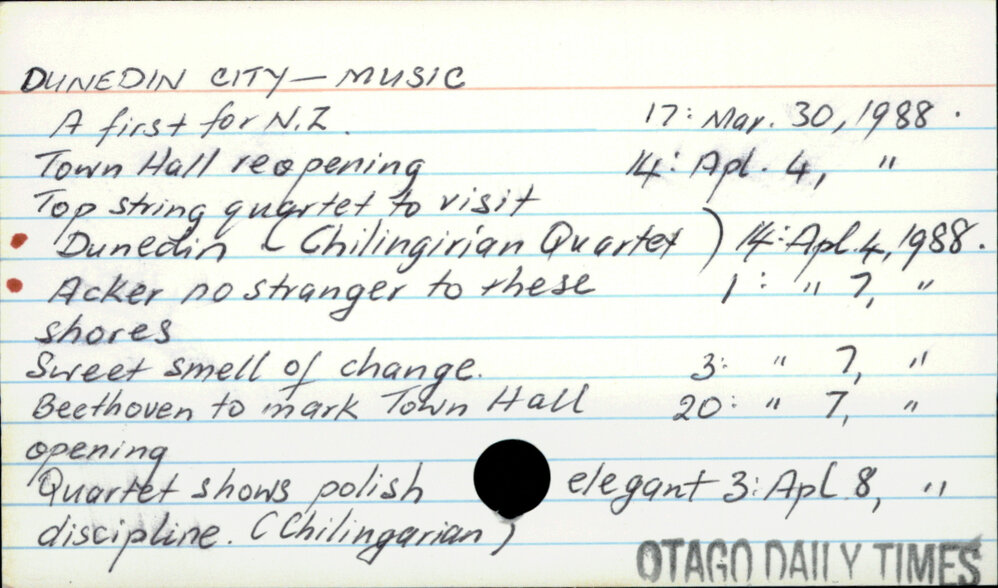 DUNEDIN CITY — MUSIC
A first for N.Z. 17: Mar. 30, 1988.
Town Hall reopening 14: Apl. 4, "
Top string quartet to visit
Dunedin ( Chilingirian Quartet ) 14: Apl. 4, 1988.
Acker no stranger to these 1: " 7, "
shores
Sweet smell of change. 3: " 7, "
Beethoven to mark Town Hall 20: " 7, "
opening
Quartet shows polish elegant 3: Apl. 8, "
discipline. (Chilingarian)
OTAGO DAILY TIMES